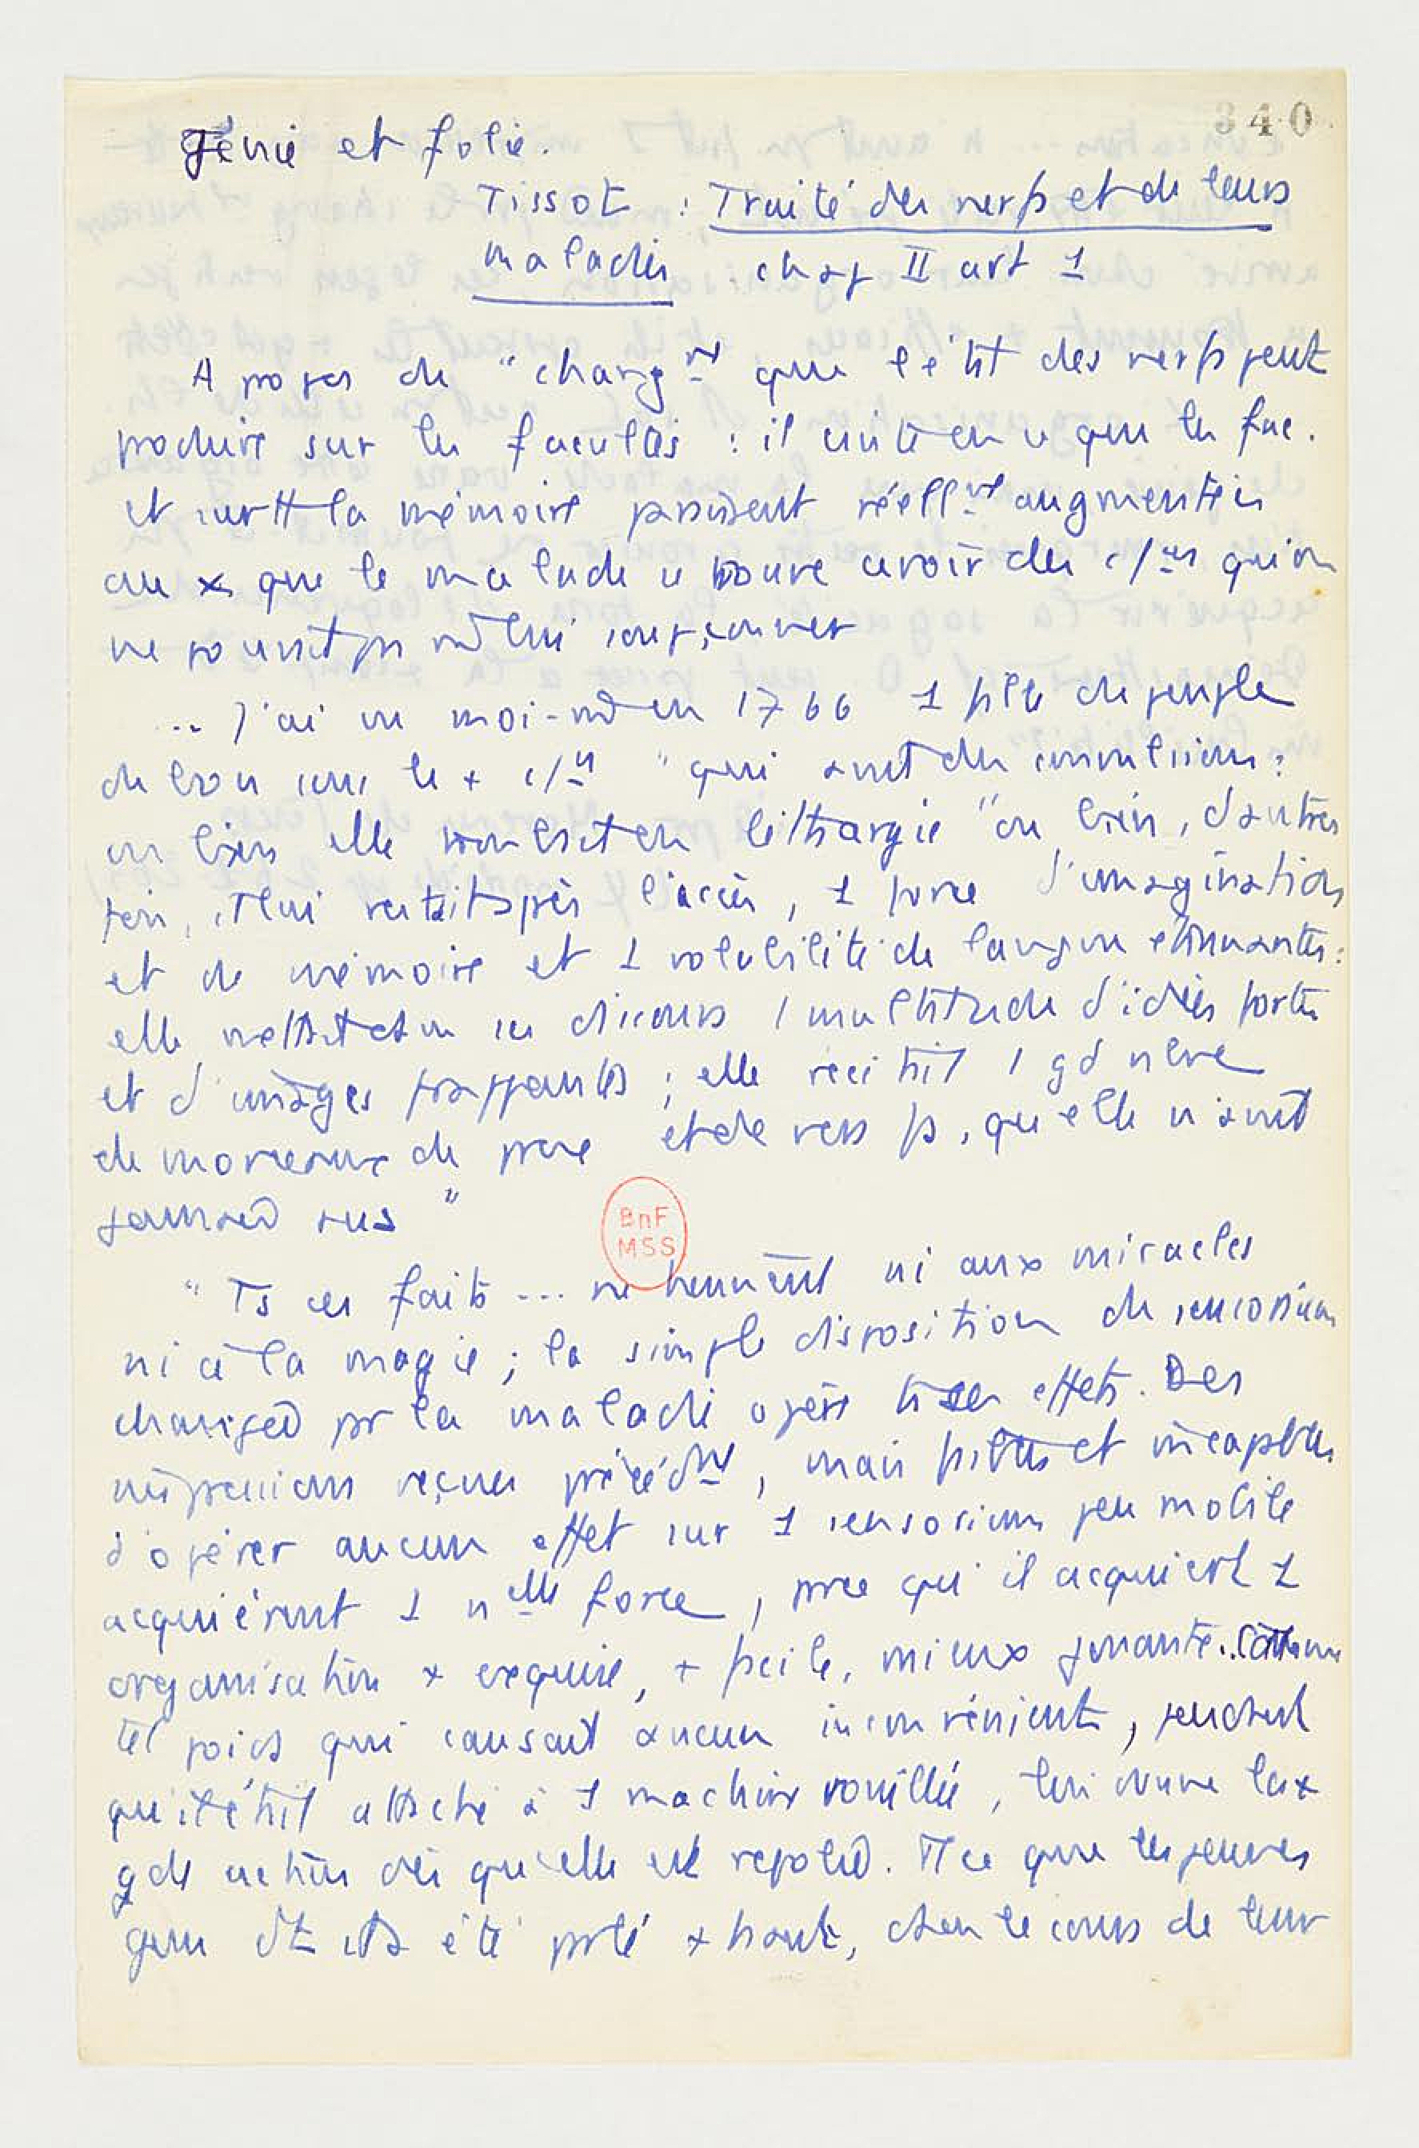 340
Génie et folie.
Tissot : Traité des nerfs et de leurs
maladies. chap II art 1
A propos du "chang^nt que l'état des nerfs peut
produire sur les facultés : il cite en ce que les fac.
et surtt la mémoire paraissent réell^nt augmentées
au x que le malade a
ne pouvait pas m̂ lui soupçonner
... J'ai vu moi-m̂ en 1766 1 fille du peuple
de bon sens le + "qui avait des convulsions :
ou bien elle tombait en léthargie "ou bien, d'autres
fois, il lui restait après l'accès, 1 force d'imagination
et de mémoire et 1 volubilité de langue étonnantes :
elle mettait dans ses discours 1 multitude d'idées fortes
et d'images frappantes ; elle récitait 1 gd nbre
de morceaux de prose et de vers fs, qu'elle n'avait
jamais sus"
BnF
MSS
"Ts ces faits ... ne tiennent ni aux miracles
ni à la magie ; la simple disposition du sensorium
changée pr la maladie opère ts ces effets. Des
impressions reçues précéd^nt, mais faibles et incapables
d'opérer aucun effet sur 1 sensorium peu mobile
acquièrent 1 n^elle force, parce qu'il acquiert 1
organisation + exquise, + facile, mieux jouante. Comme
tel poids qui causait aucun inconvénient, pendant
qu'il était attaché à 1 machine rouillée, lui donne la +
gde action dès qu'elle est repolie. Tt ce que les jeunes
gens dt il a été parlé + haut, dans le cours de leur